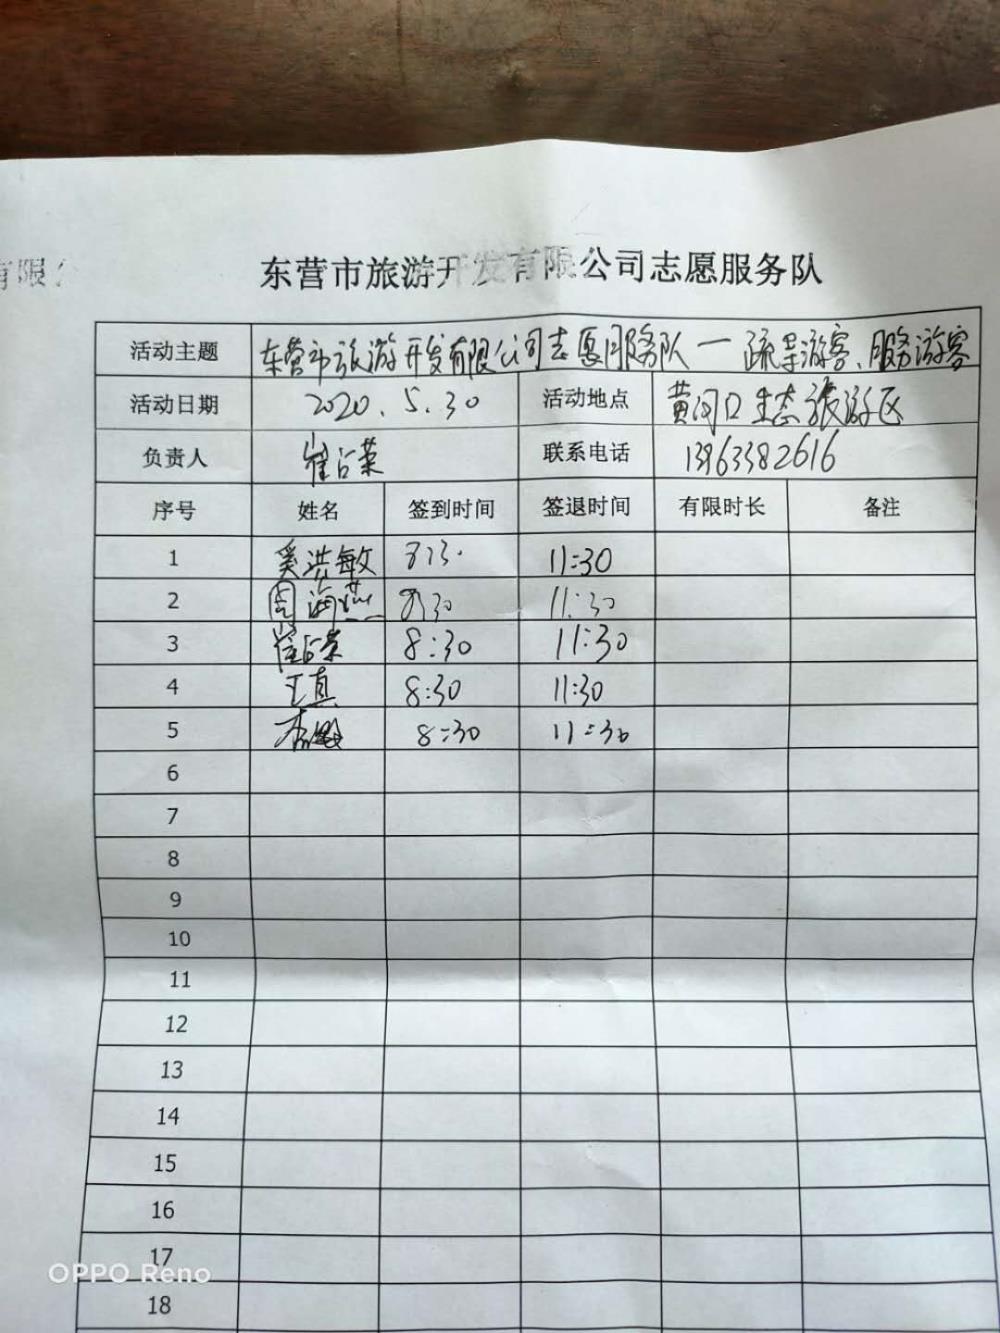 有限公
东营市旅游开发有限公司志愿服务队
活动主题 东营市旅游开发有限公司志愿服务队一疏导游客、服务游客
活动日期 2020.5.30 活动地点 黄河口生态旅游区
负责人 崔占荣 联系电话 13963382616
序号 姓名 签到时间 签退时间 有限时长 备注
1 奚洪敏 11:30
2 周海燕 8:30 11:30
3 崔占荣 8:30 11:30
4 王真 8:30 11:30
5 8:30 11:30
6
7
8
9
10
11
12
13
14
15
16
17
OPPO Reno
18